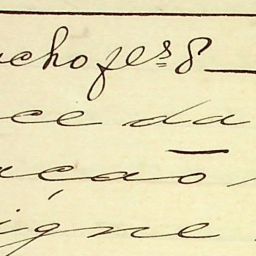 acho fes 8
ce da
ação
igne